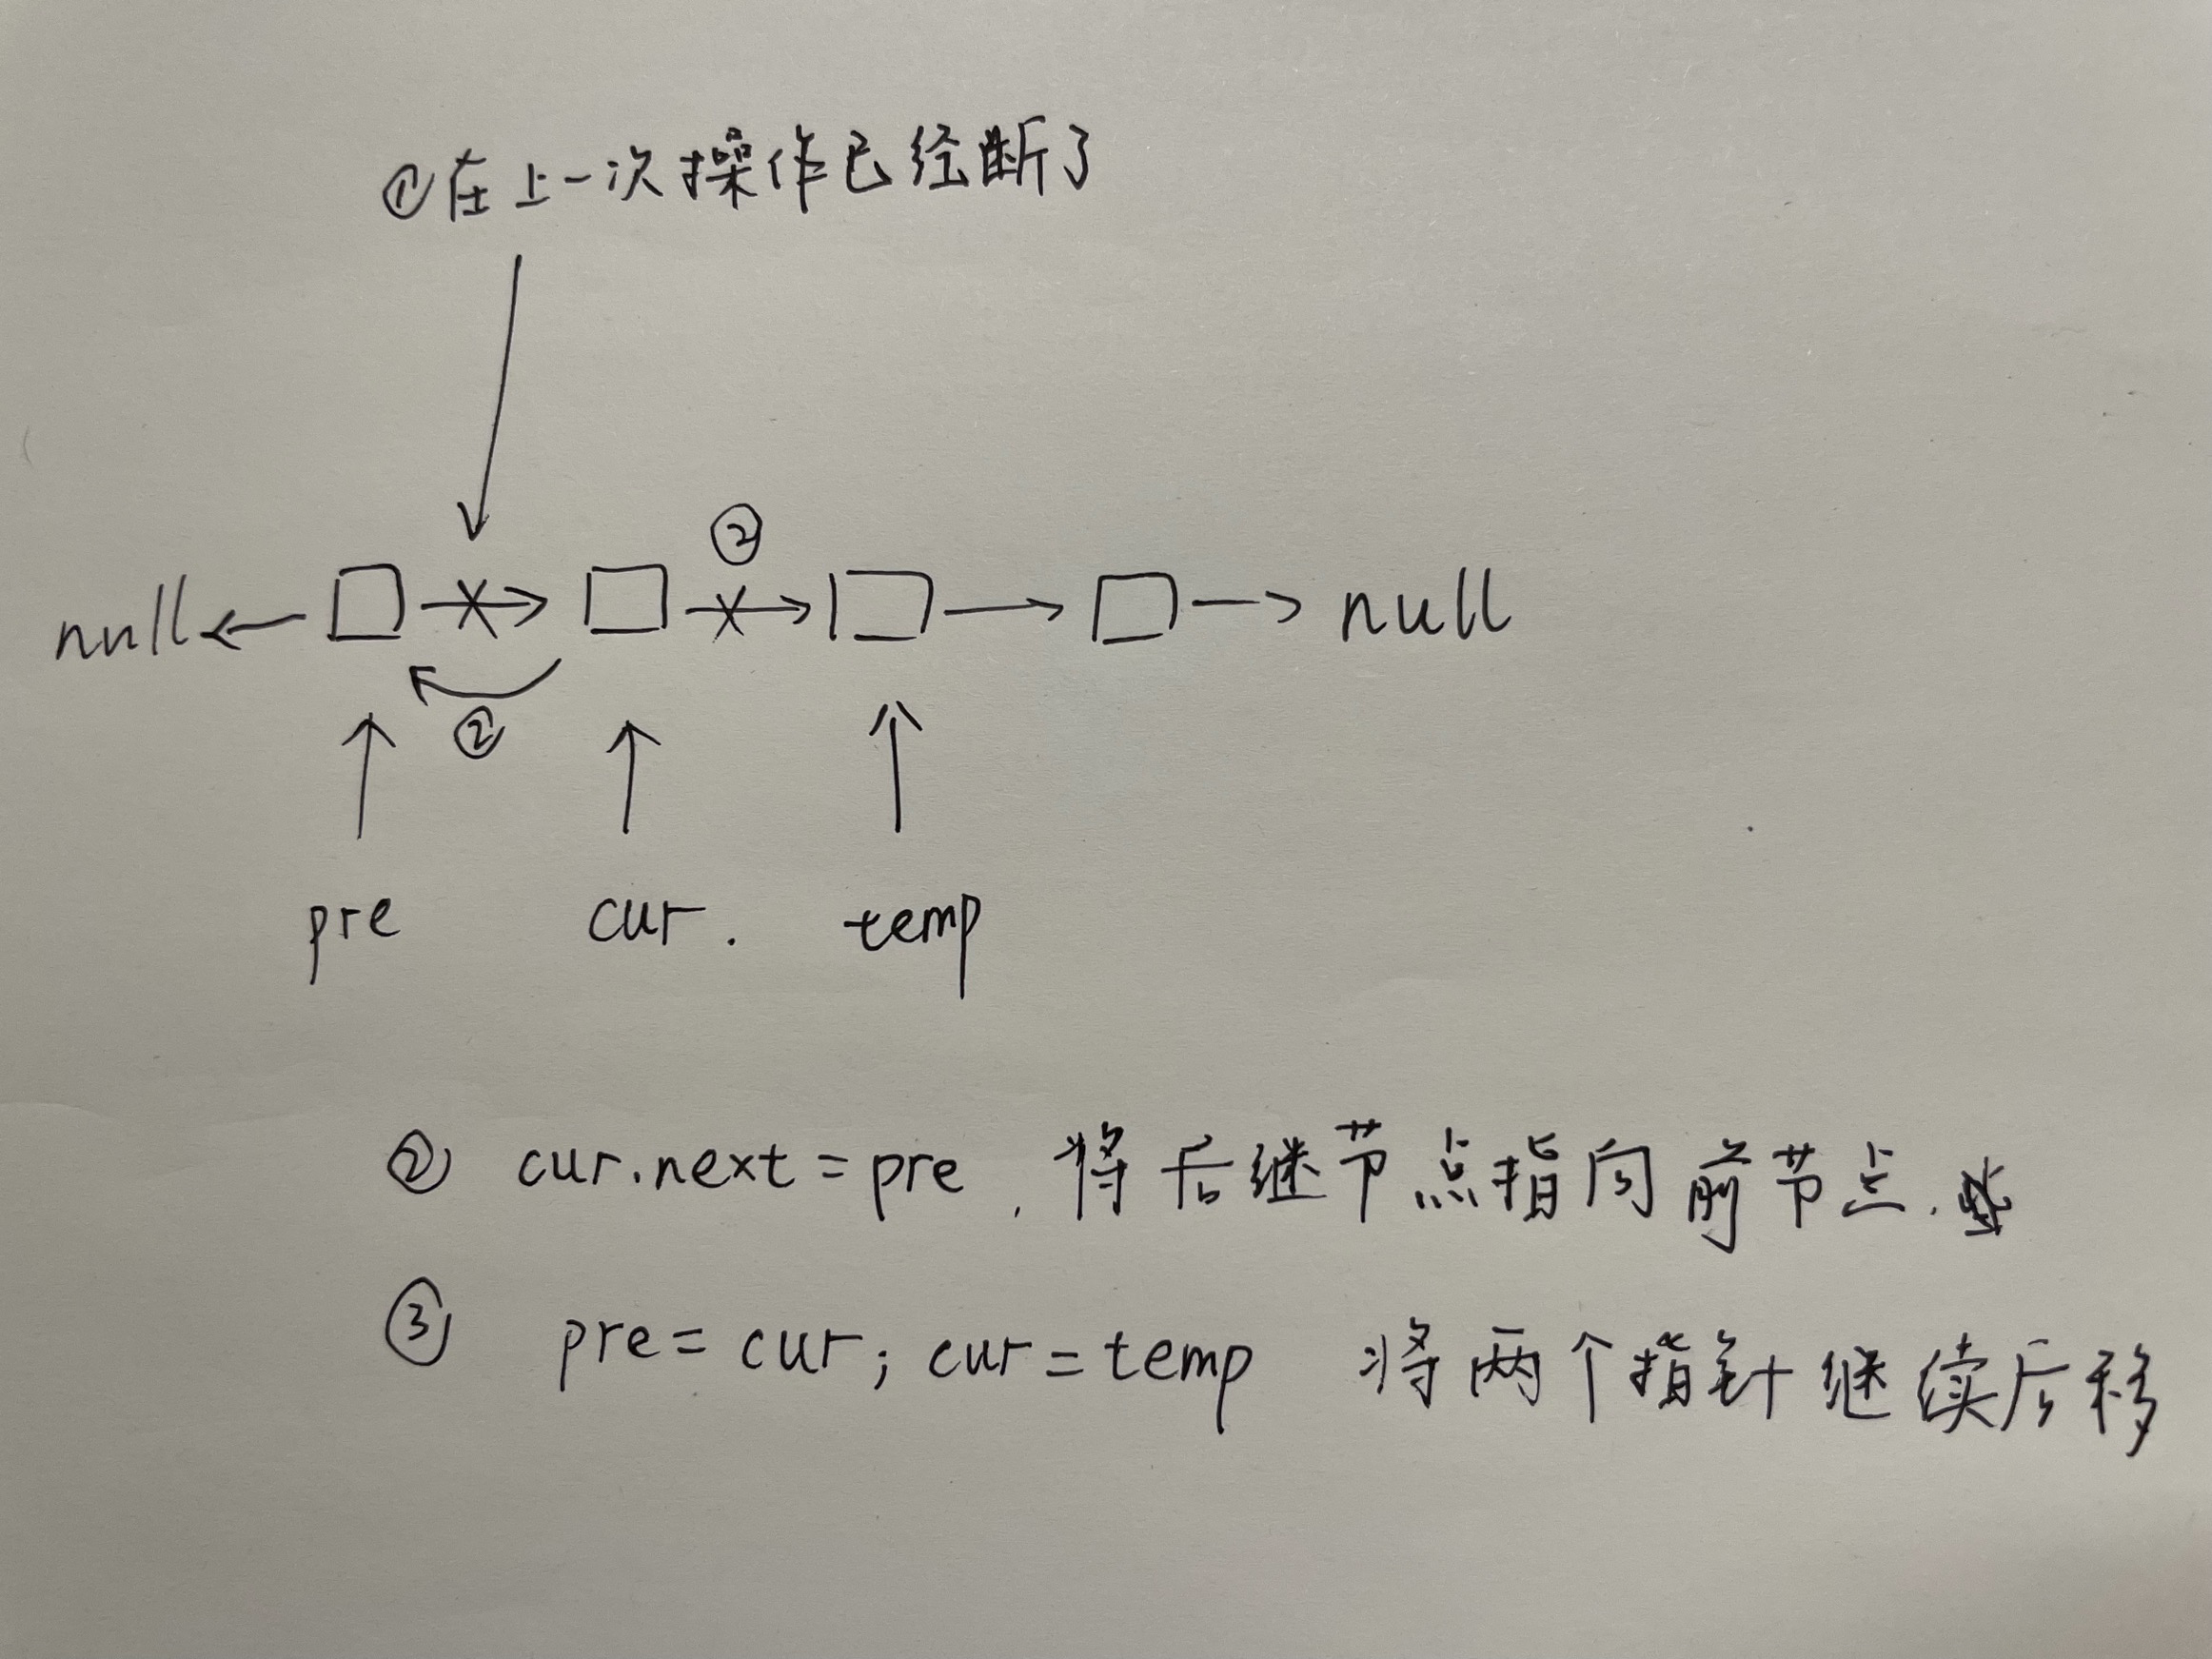 ①在上一次操作已经断了
②
null ← □ → □ → □ → □ → null
②
pre cur. temp
② cur.next = pre, 将后继节点指向前节点.
③ pre = cur; cur = temp 将两个指针继续后移